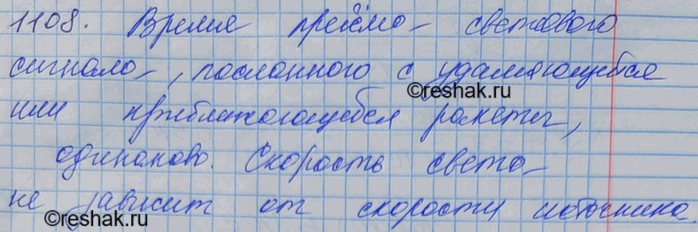 1108. Время приёма светового
сигнала, посланного с удаляющейся
©reshak.ru
или приближающейся ракеты,
одинаково. Скорость света
не зависит от скорости источника.
©reshak.ru